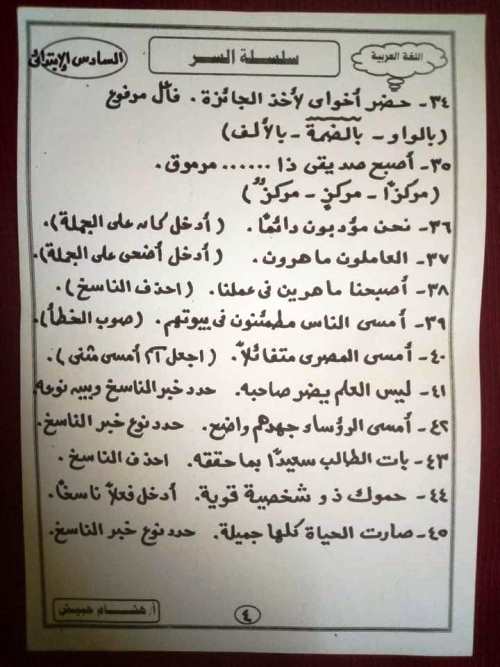 اللغة العربية
سلسلة السر
السادس الإبتدائى
٣٤- حضر أخواى لأخذ الجائزة. فاعل مرفوع
(بالواو - بالضمة - بالألف)
٣٥- أصبح صديقى ذا ...... مرموق.
(مركزًا - مركزٍ - مركزٌ)
٣٦- نحن مؤدبون دائمًا. (أدخل كان على الجملة).
٣٧- العاملون ماهرون. (أدخل أضحى على الجملة).
٣٨- أصبحنا ماهرين فى عملنا. (احذف الناسخ).
٣٩- أمسى الناس مطمئنون فى بيوتهم. (صوب الخطأ).
٤٠- أمسى المصرى متفائلًا. (اجعل اسم أمسى مثنى).
٤١- ليس العلم يضر صاحبه. حدد خبر الناسخ وبين نوعه.
٤٢- أمسى الرؤساء جهدهم واضح. حدد نوع خبر الناسخ.
٤٣- بات الطالب سعيدًا بما حققه. احذف الناسخ.
٤٤- حموك ذو شخصية قوية. أدخل فعلًا ناسخًا.
٤٥- صارت الحياة كلها جميلة. حدد نوع خبر الناسخ.
٤
أ/ هشام حبيش